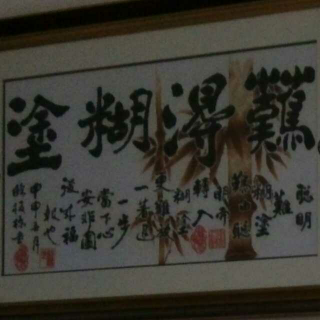 難得糊塗
聰明
難
糊塗
難由聰
明而
轉入
糊塗
更難
一著退
一步
當下心
安非圖
後來福
報也
甲申